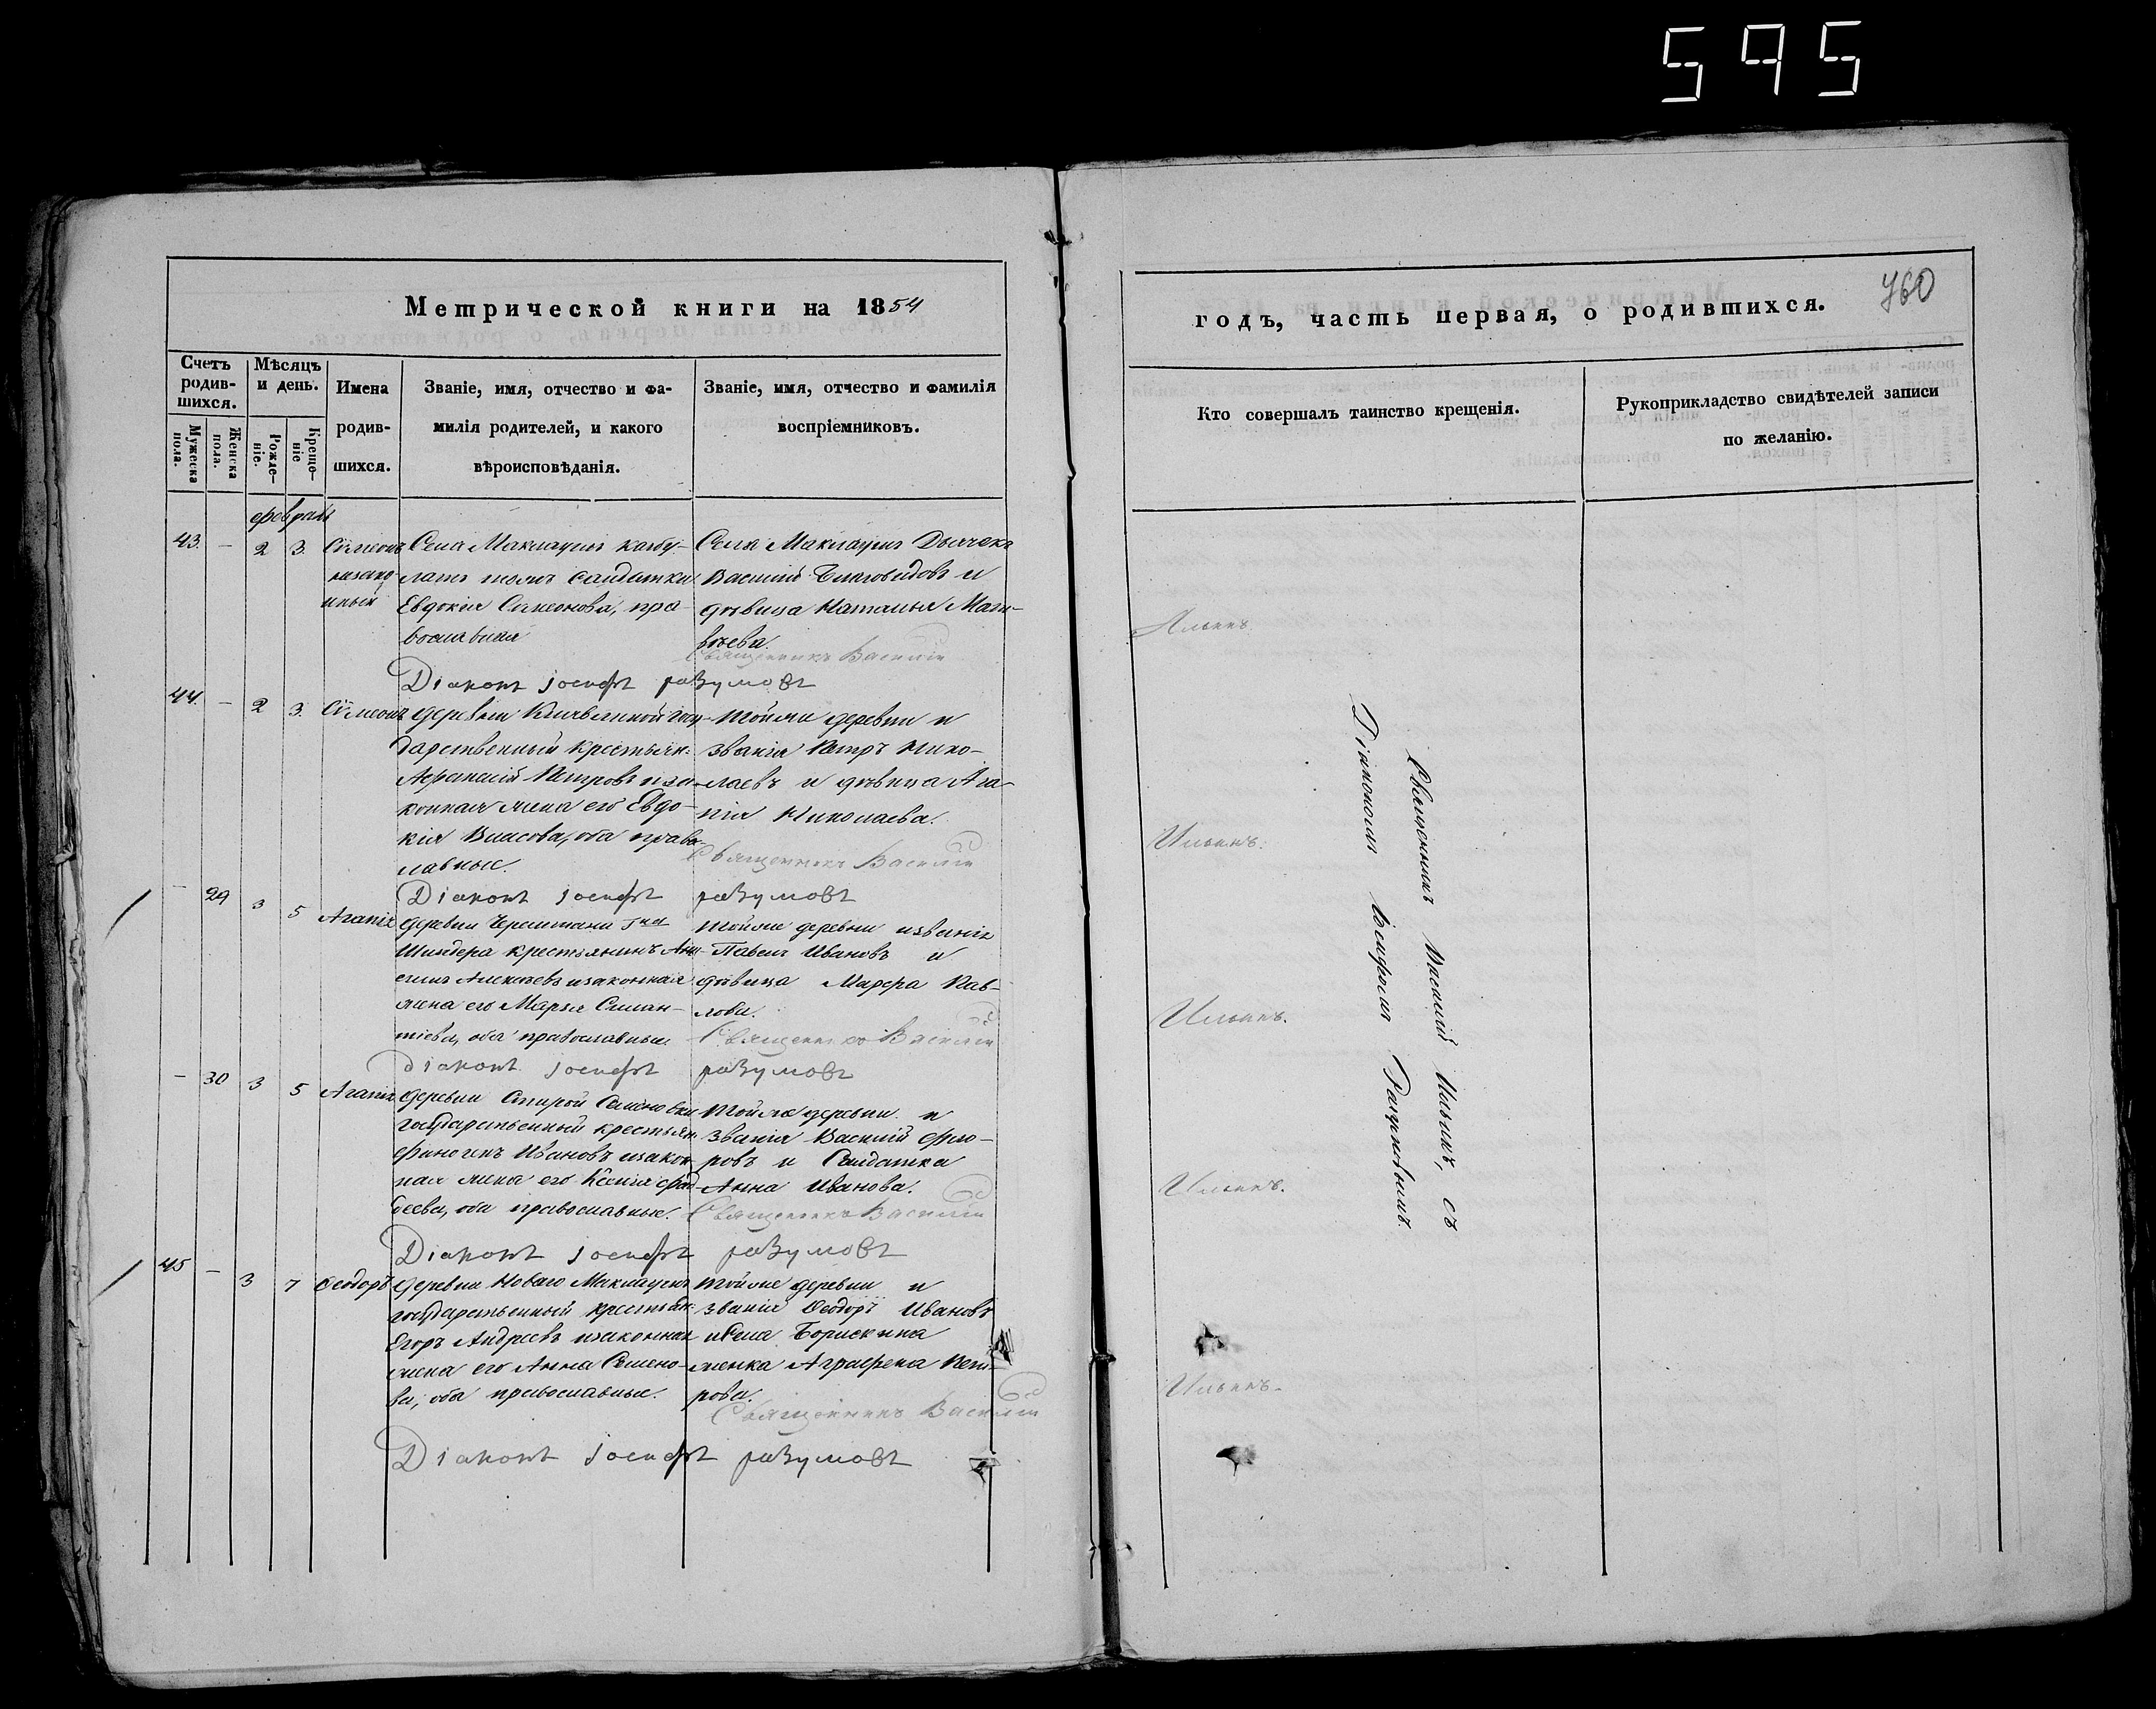 595
Метрической книги на 1854
годъ, часть первая, о родившихся.
460
Счетъ родившихся.
Мужеска пола.
Женска пола.
Мѣсяцъ и день.
Рожде-ніе.
Креще-ніе
Имена
родив-
шихся.
Званіе, имя, отчество и фа-
милія родителей, и какого
вѣроисповѣданія.
Званіе, имя, отчество и фамилія
воспріемниковъ.
Кто совершалъ таинство крещенія.
Рукоприкладство свидѣтелей записи
по желанію.
февраль
43. — 2 3. Сѵмеонъ
незако-
нный
Села Маклауши
солдатка
Евдокія Симеонова, пра-
вославная
Села Маклауши Дьячекъ
Василій Благовидовъ и
дѣвица Наталья Мат-
вѣева.
Священникъ Василій
Ильинъ.
Діаконъ Іосифъ Разумовъ
44. — 2 3. Сѵмеонъ
деревни госу-
дарственный крестьян.
Афанасій Петровъ и за-
конная жена его Евдо-
кія Власова, оба право-
славные.
Тойже деревни и
званія Петръ Нико-
лаевъ и дѣвица Ага-
пія Николаева.
Священникъ Василій
Ильинъ.
Діаконъ Іосифъ Разумовъ
— 29 3 5 Агапія
деревни
крестьянинъ
Алексѣевъ и законная
жена его Марья
оба православные
Тойже деревни и званія
Павелъ Ивановъ и
дѣвица Марфа Пав-
лова.
Священникъ Василій
Ильинъ.
діаконъ Іосифъ Разумовъ
— 30 3 5 Агапія
деревни Старой Семеновки
государственный крестьян.
Финогенъ Ивановъ и закон-
ная жена его Ксенія Фад-
деева, оба православные.
Тойже деревни и
званія Василій Фло-
ровъ и Солдатка
Анна Иванова.
Священникъ Василій
Ильинъ.
Діаконъ Іосифъ Разумовъ
45 — 3 7 Ѳеодоръ
деревни Новаго Маклауша
государственный крестьян.
Егоръ Андреевъ и законная
жена его Анна Семено-
ва, оба православные.
Тойже деревни и
званія Ѳеодоръ Ивановъ
и села Борискина
женка Аграфена Пет-
рова.
Священникъ Василій
Ильинъ.
Діаконъ Іосифъ Разумовъ
Священникъ Василій Ильинъ, съ
Діакономъ Іосифомъ Разумовымъ.